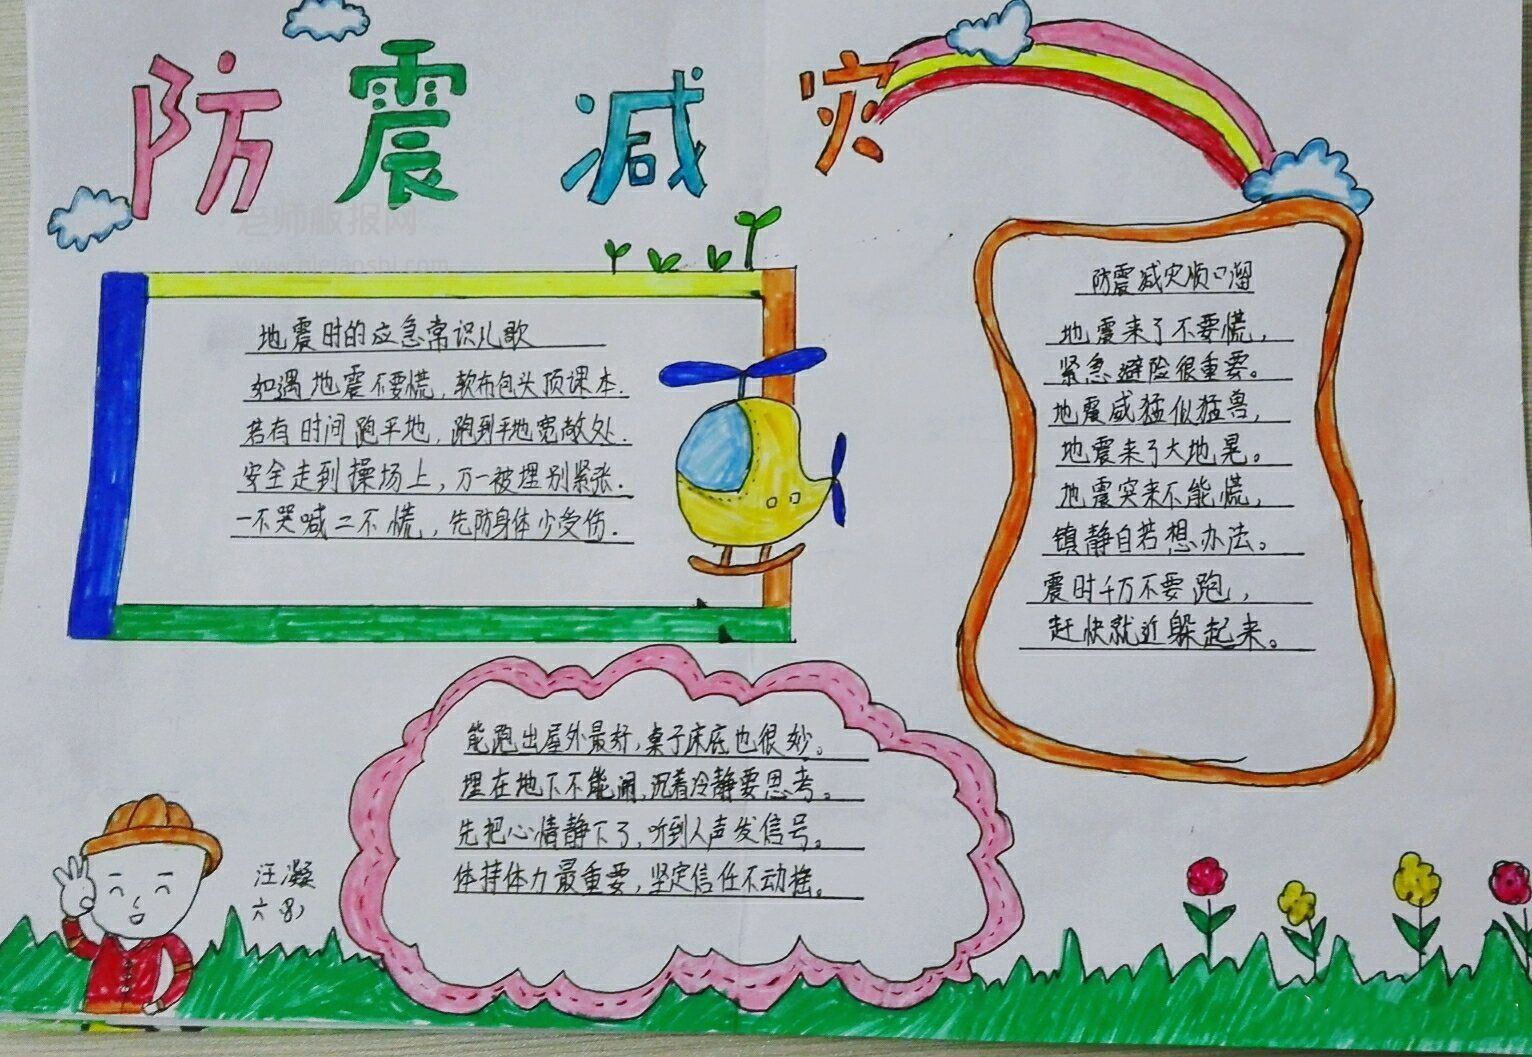 防震减灾
老师板报网
地震时的应急常识儿歌
如遇地震不要慌，软布包头顶课本.
若有时间跑平地，跑到平地宽敞处.
安全走到操场上，万一被埋别紧张.
一不哭喊二不慌，先防身体少受伤.
防震减灾顺口溜
地震来了不要慌，
紧急避险很重要。
地震威猛似猛兽，
地震来了大地晃。
地震突来不能慌，
镇静自若想办法。
震时千万不要跑，
赶快就近躲起来。
能跑出屋外最好，桌子床底也很妙。
埋在地下不能闹，沉着冷静要思考。
先把心情静下了，听到人声发信号。
体持体力最重要，坚定信任不动摇。
汪凝
六